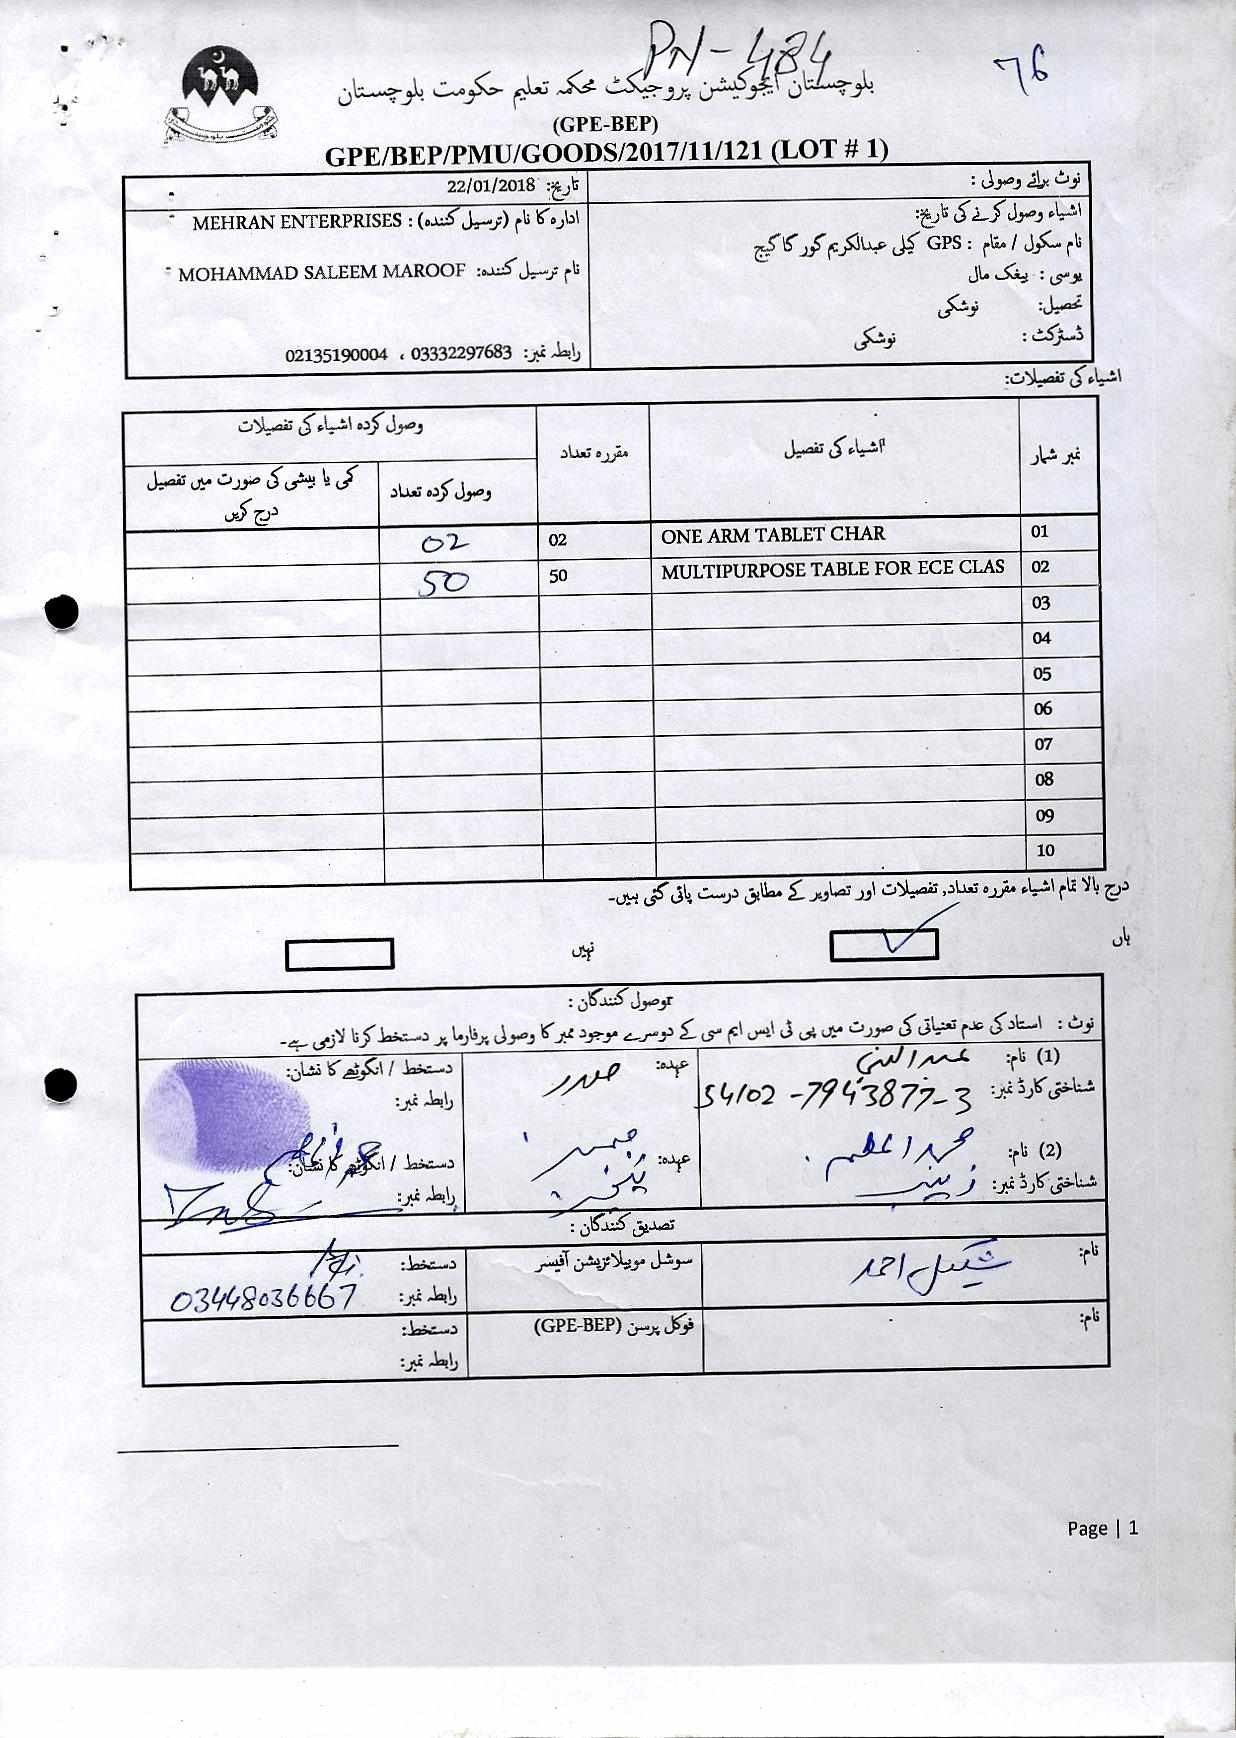 PN-484
76
بلوچستان ایجوکیشن پروجیکٹ محکمہ تعلیم حکومت بلوچستان
(GPE-BEP)
GPE/BEP/PMU/GOODS/2017/11/121 (LOT # 1)
نوٹ برائے وصولی :
تاریخ: 22/01/2018
اشیاء وصول کرنے کی تاریخ:
ادارہ کا نام (ترسیل کنندہ) : MEHRAN ENTERPRISES
نام سکول / مقام : GPS کیلی عبدالکریم گور گا گیج
نام ترسیل کنندہ: MOHAMMAD SALEEM MAROOF
یوسی : بیغک مال
تحصیل: نوشکی
ڈسٹرکٹ : نوشکی
رابطہ نمبر: 03332297683 ، 02135190004
اشیاء کی تفصیلات:
نمبر شمار
اشیاء کی تفصیل
مقررہ تعداد
وصول کردہ اشیاء کی تفصیلات
وصول کردہ تعداد
کمی یا بیشی کی صورت میں تفصیل درج کریں
01 ONE ARM TABLET CHAR 02 02
02 MULTIPURPOSE TABLE FOR ECE CLAS 50 50
03
04
05
06
07
08
09
10
درج بالا تمام اشیاء مقررہ تعداد, تفصیلات اور تصاویر کے مطابق درست پائی گئی ہیں۔
ہاں ✓ نہیں
موصول کنندگان :
نوٹ : استاد کی عدم تعنیاتی کی صورت میں پی ٹی ایس ایم سی کے دوسرے موجود ممبر کا وصولی پرفارما پر دستخط کرنا لازمی ہے۔
(1) نام: عبدالنبی
عہدہ: صدر
دستخط / انگوٹھے کا نشان:
شناختی کارڈ نمبر: 54102-7943877-3
رابطہ نمبر:
(2) نام: محمد اعظم
عہدہ:
دستخط / انگوٹھے کا نشان:
شناختی کارڈ نمبر:
رابطہ نمبر:
تصدیق کنندگان :
نام: شکیل احمد
سوشل موبیلائزیشن آفیسر
دستخط:
رابطہ نمبر: 03448036667
نام:
فوکل پرسن (GPE-BEP)
دستخط:
رابطہ نمبر:
Page | 1